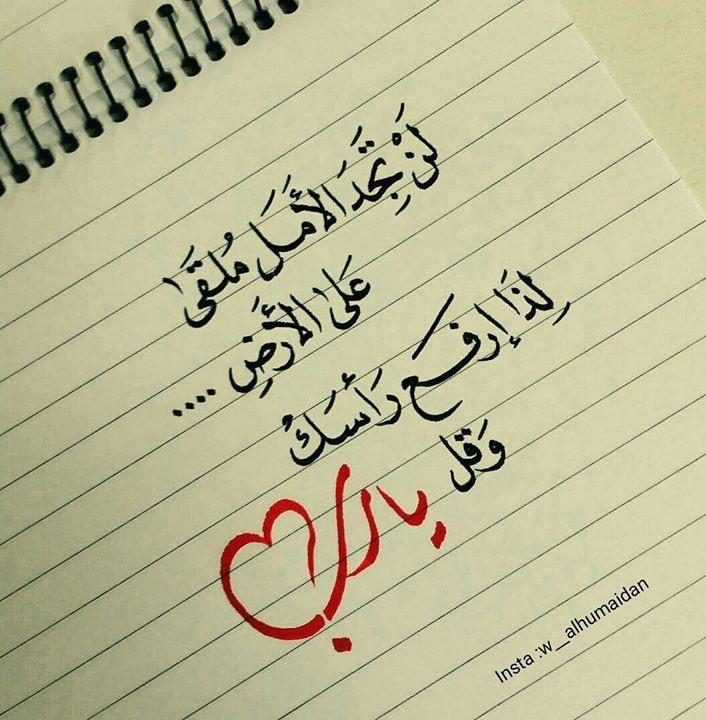 لَنْ تَجِدَ الأَمَلَ مُلقَىٰ
عَلىٰ الأَرَضِ ....
لِذَا إرفَع رَأسَكُ
وَقل
يارب
Insta :w__alhumaidan